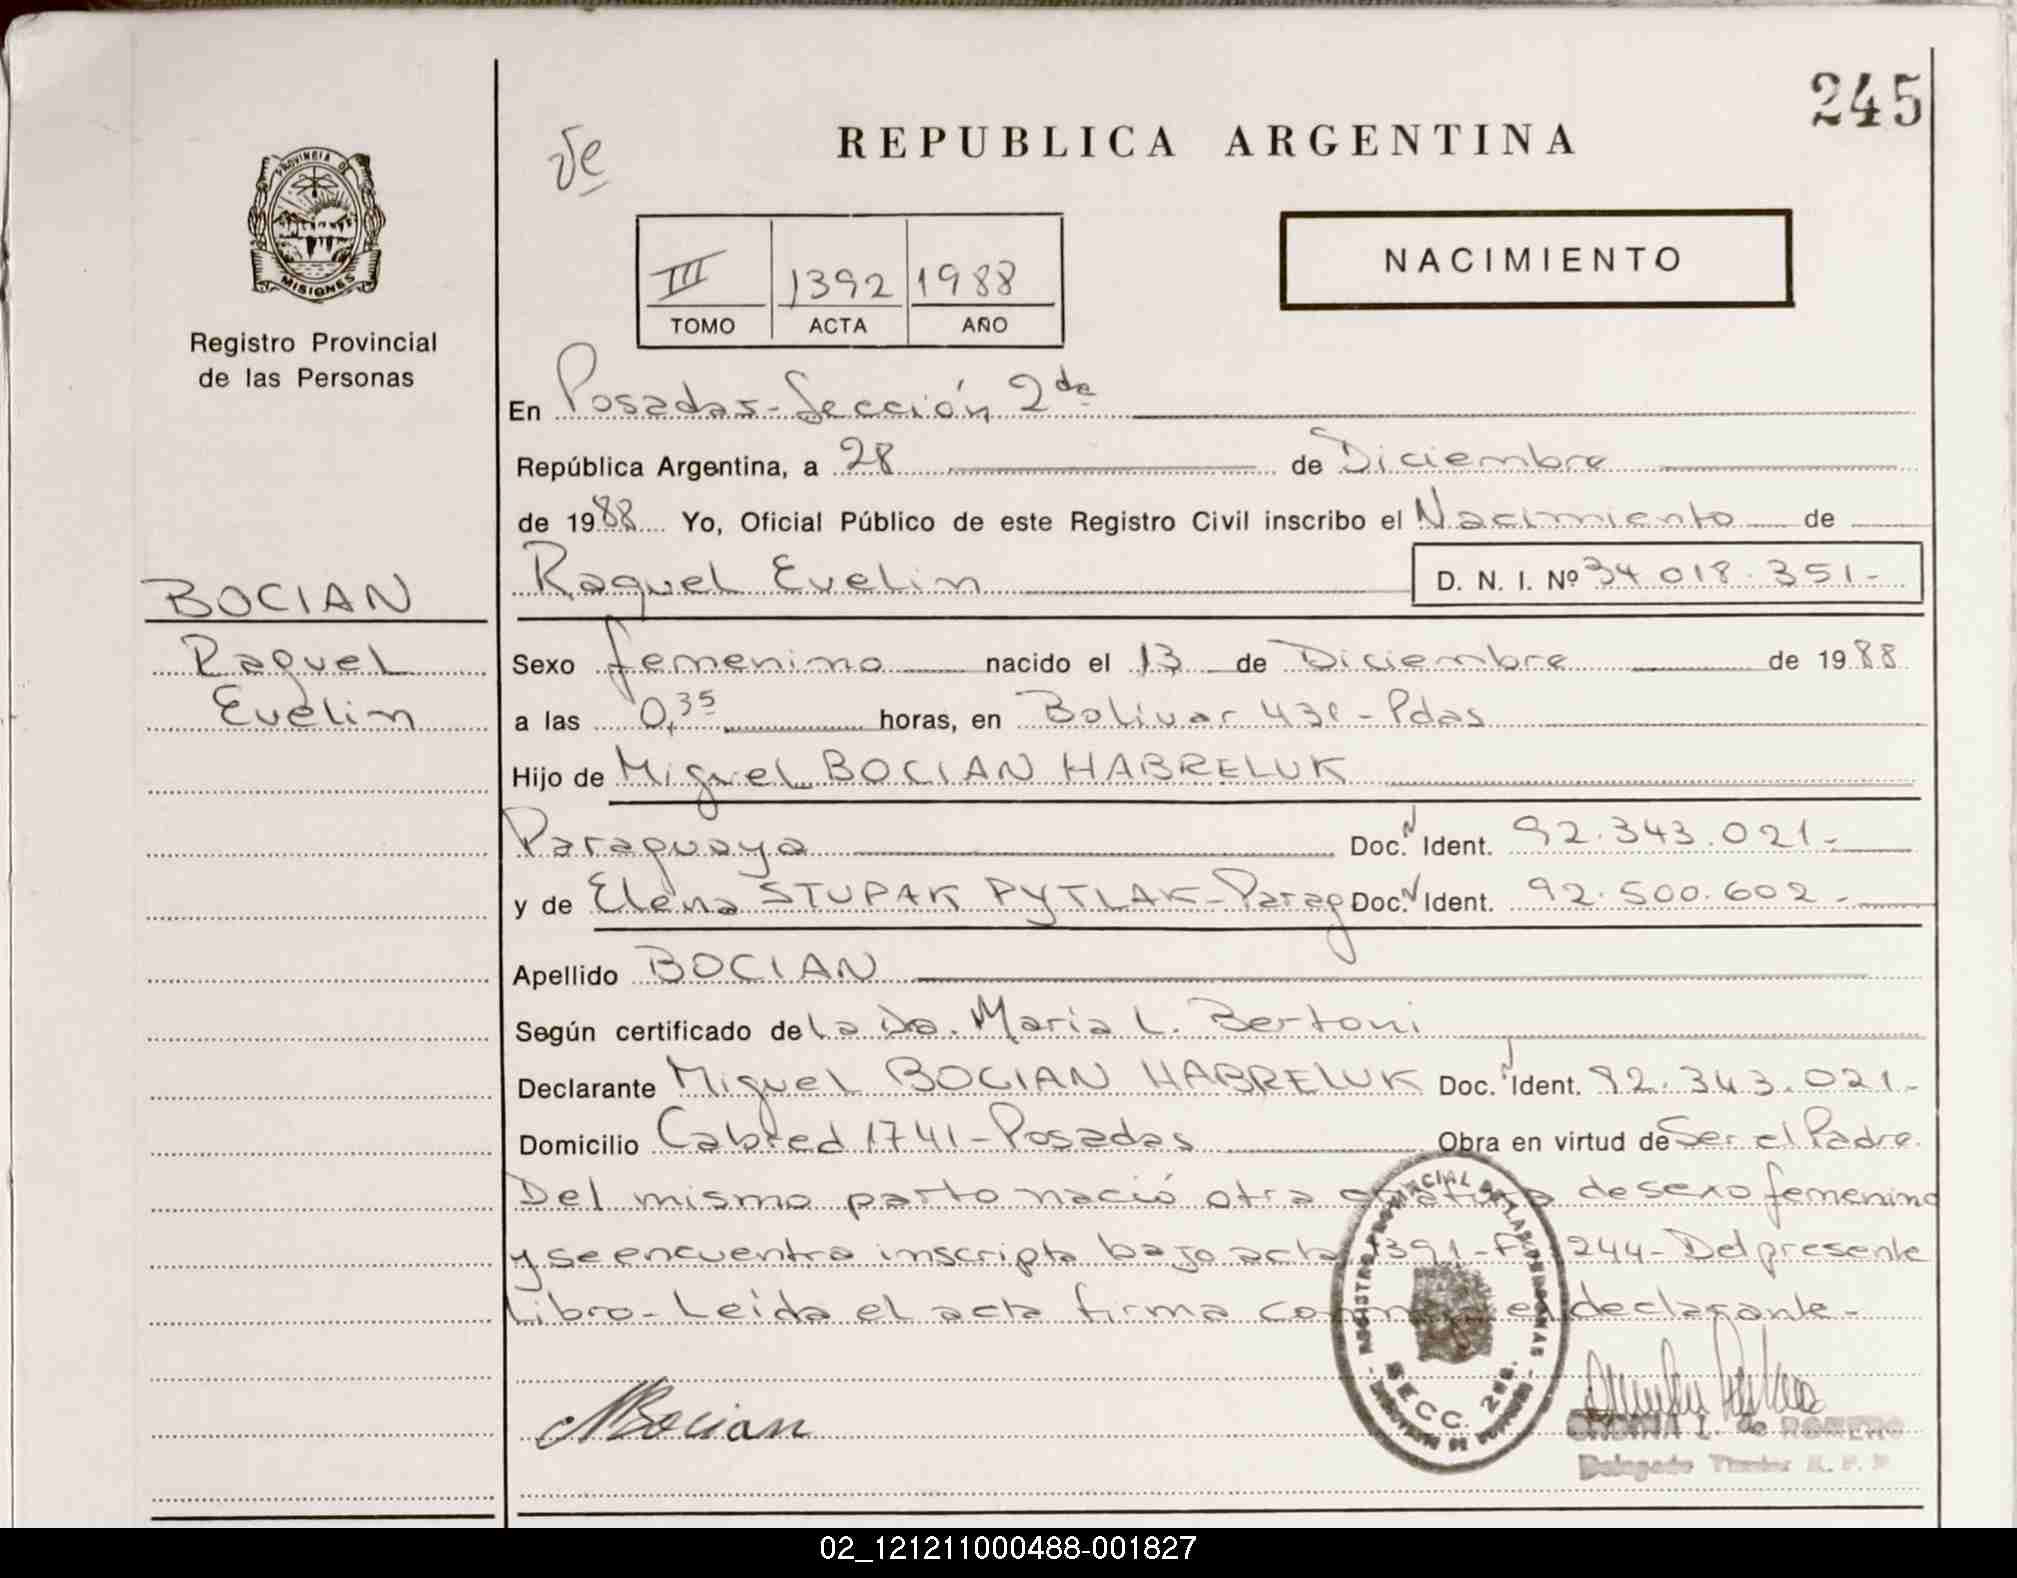 245
REPUBLICA ARGENTINA
PROVINCIA DE
MISIONES
Registro Provincial
de las Personas
III 1392 1988
TOMO ACTA AÑO
NACIMIENTO
En Posadas-Sección 2da
República Argentina, a 28 de Diciembre
de 1988 Yo, Oficial Público de este Registro Civil inscribo el Nacimiento de
BOCIAN
Raquel
Evelin
Raquel Evelin D. N. I. Nº 34.018.351-
Sexo femenino nacido el 13 de Diciembre de 1988
a las 0,35 horas, en Bolivar 431-Pdas
Hijo de Miguel BOCIAN HABRELUK
Paraguaya Doc. Ident. 92.343.021-
y de Elena STUPAK PYTLAK-Parag Doc. Ident. 92.500.602-
Apellido BOCIAN
Según certificado de la Da. Maria L. Bertoni
Declarante Miguel BOCIAN HABRELUK Doc. Ident. 92.343.021-
Domicilio Cabred 1741-Posadas Obra en virtud de Ser el Padre.
Del mismo parto nació otra criatura de sexo femenino
y se encuentra inscripta bajo acta 1391-Fº 244-Del presente
Libro-Leída el acta firma conmigo el declarante-
REGISTRO PROVINCIAL DE LAS PERSONAS
SECC. 2da.
MBocian
I. de ROMERO
Delegado Titular R. P. P.
02_121211000488-001827